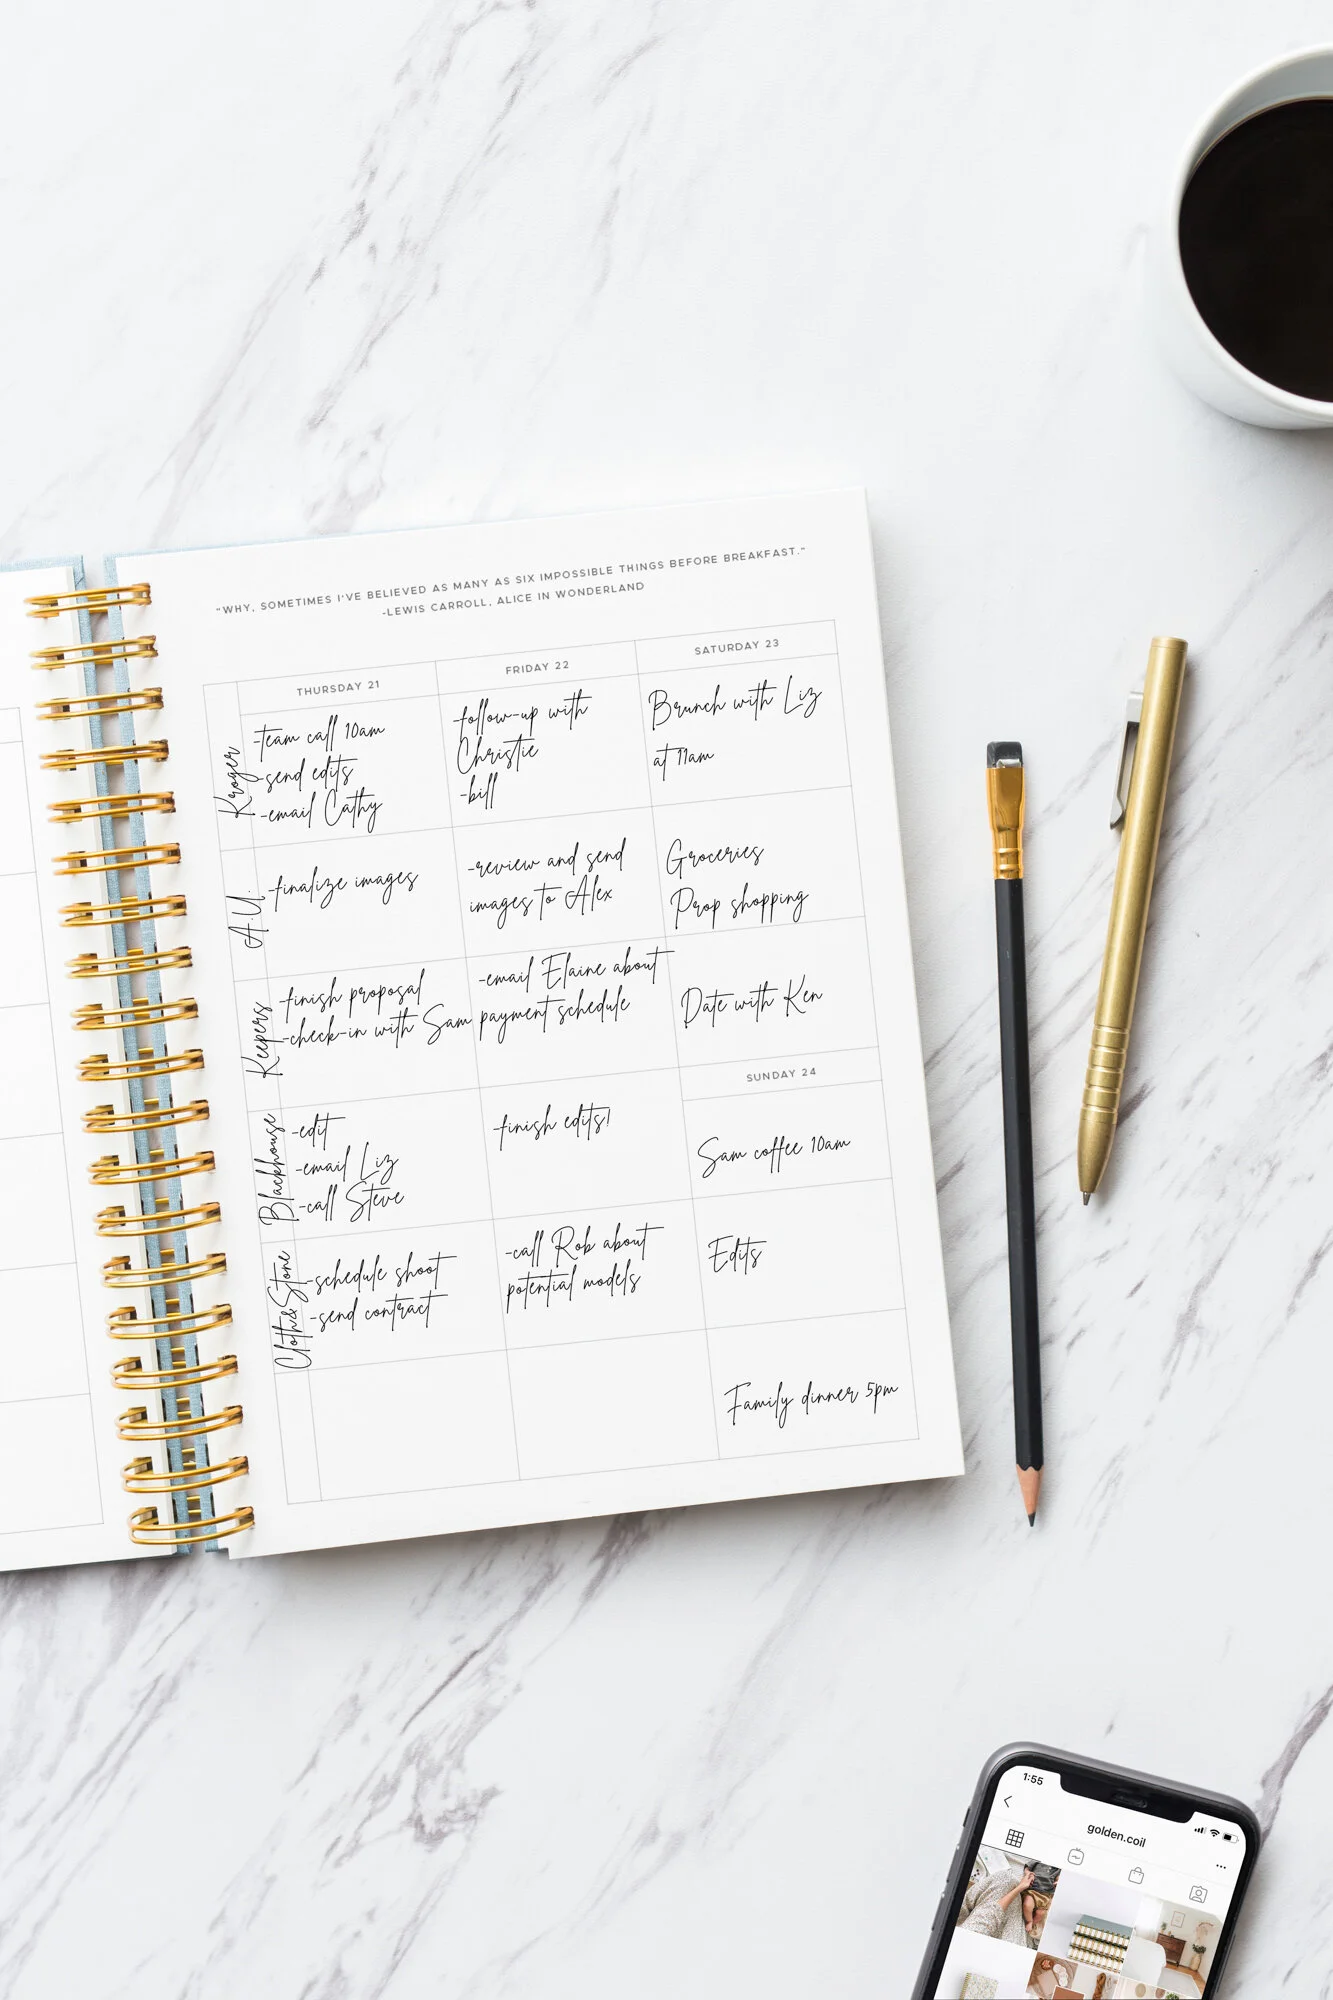 "WHY, SOMETIMES I'VE BELIEVED AS MANY AS SIX IMPOSSIBLE THINGS BEFORE BREAKFAST."
-LEWIS CARROLL, ALICE IN WONDERLAND
THURSDAY 21
Kroger
-team call 10am
-send edits
-email Cathy
A.U.
-finalize images
Keepers
-finish proposal
-check-in with Sam
Blackhouse
-edit
-email Liz
-call Steve
Cloth&Stone
-schedule shoot
-send contract
FRIDAY 22
-follow-up with
Christie
-bill
-review and send
images to Alex
-email Elaine about
payment schedule
-finish edits!
-call Rob about
potential models
SATURDAY 23
Brunch with Liz
at 11am
Groceries
Prop shopping
Date with Ken
SUNDAY 24
Sam coffee 10am
Edits
Family dinner 5pm
1:55
golden.coil